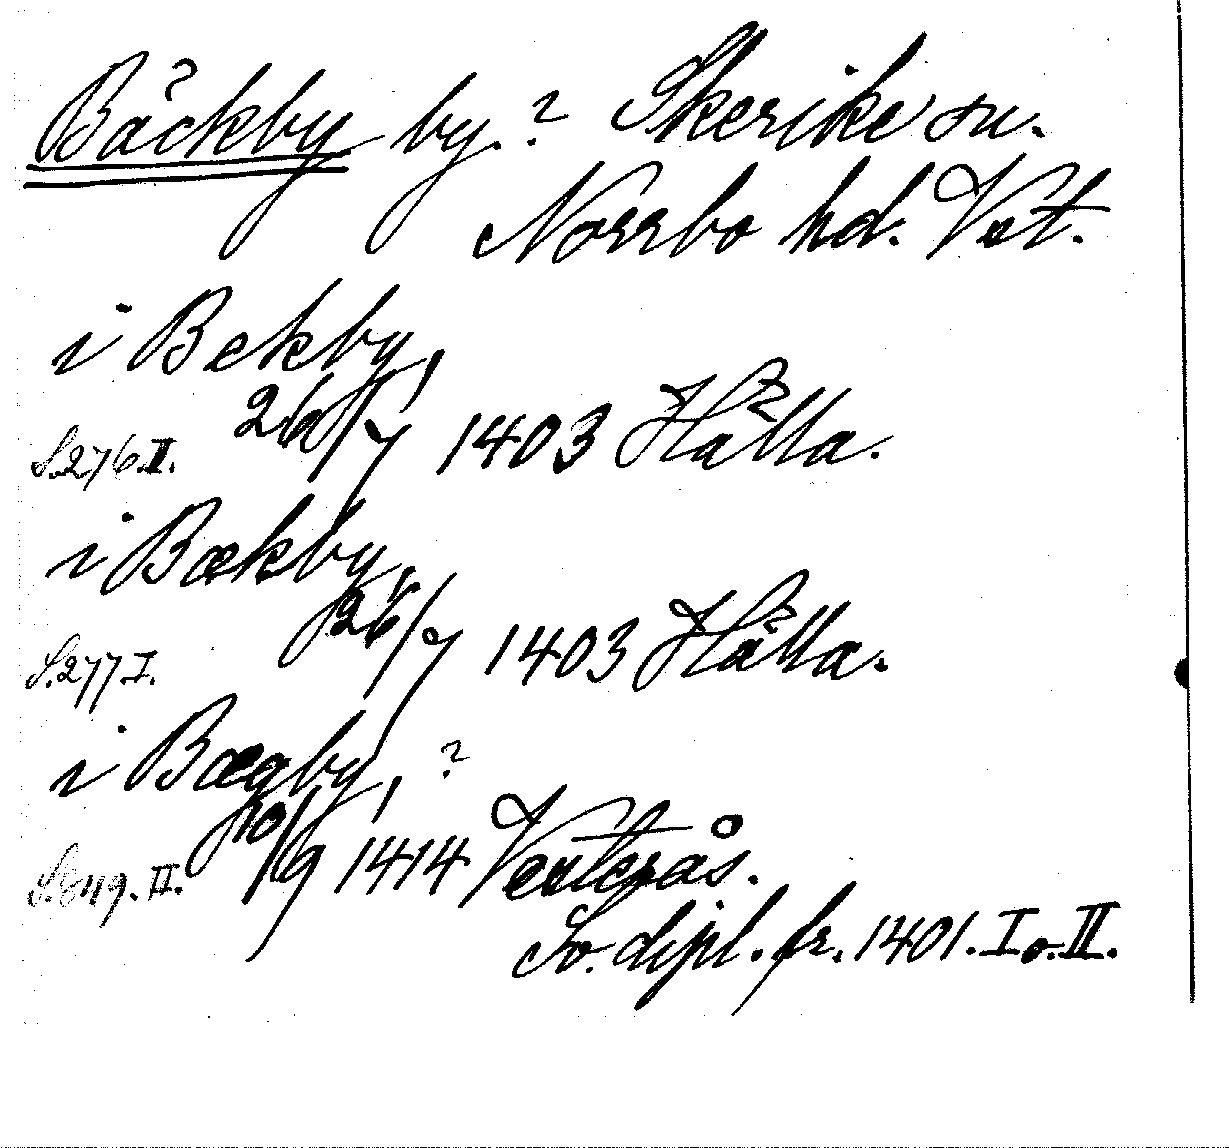 Bäckby by.? Skerike sn.
Norrbo hd. Vst.
i Bekby,
S.276.II. 26/7 1403 Hälla.
i Bækby,
S.277 I. 26/7 1403 Hälla.
i Bægby, ?
S.849. II. 10/9 1414 Vesterås.
Sv. dipl. fr. 1401. I o. II.